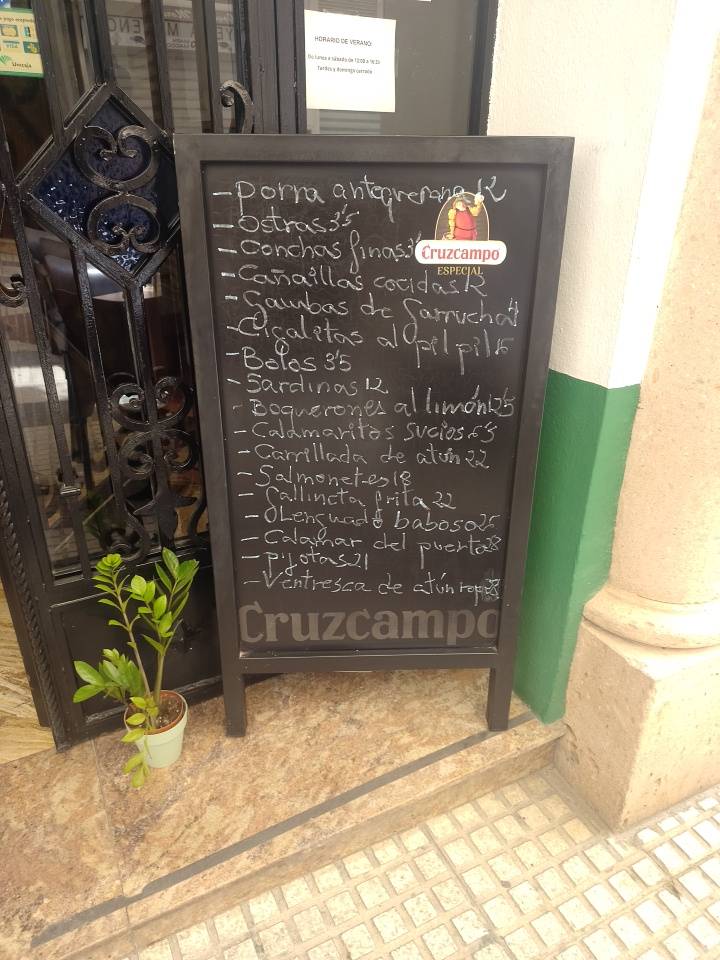 Unicaja
HORARIO DE VERANO:
De lunes a sábado de 12:00 a 16:30
Tardes y domingo cerrado
- Porra antequerana 12
- Ostras 3'5
- Conchas finas 3'
Cruzcampo
ESPECIAL
- Cañaillas cocidas 12
- Gambas de Garrucha
- Cigalitas al pil pil 16
- Bolos 3'5
- Sardinas 12
- Boquerones al limón 12'5
- Calamaritos sucios
- Carrillada de atún 22
- Salmonetes 18
- Gallineta frita 22
- Lenguado baboso 25
- Calamar del puerto 28
- Pijotas 21
- Ventresca de atún rojo
Cruzcampo